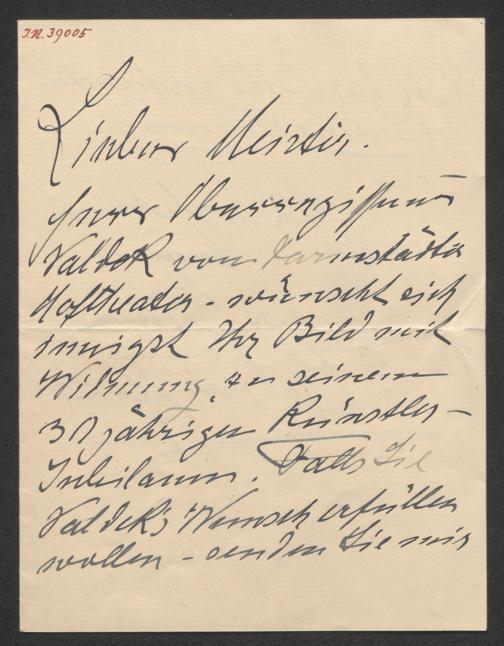 I.N. 39005
Lieber Meister.
Herr Oberregisseur
Valdek vom Darmstädter
Hoftheater - wünscht sich
innigst Ihr Bild mit
Widmung, zu seinem
30 jährigen Künstler-
Jubiläum. Falls Sie
Valdek's Wunsch erfüllen
wollen - senden Sie mir